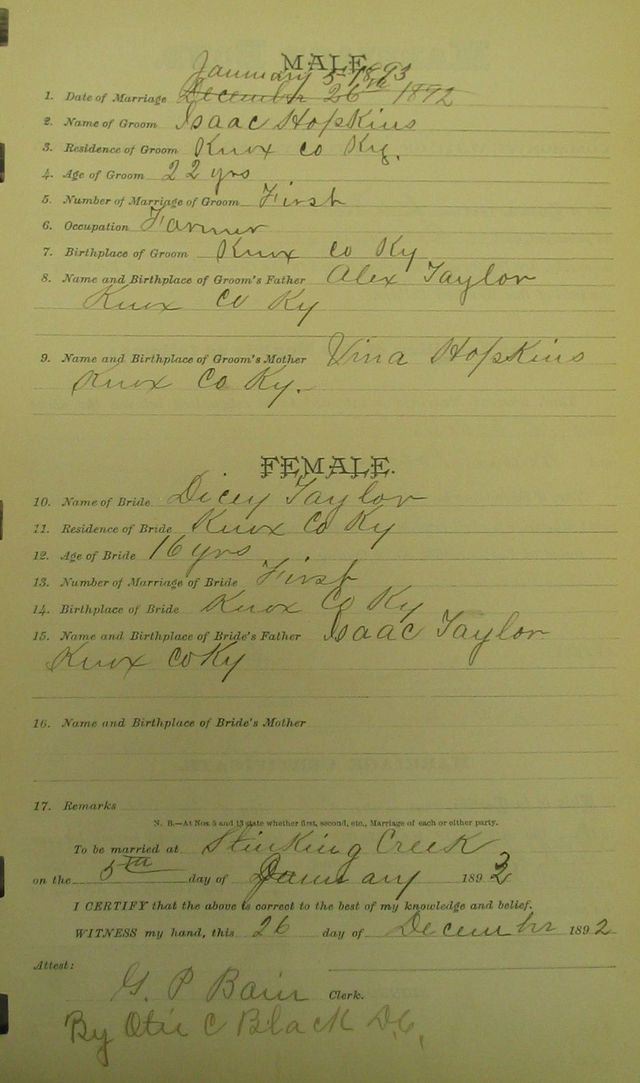 MALE.
January 5 1893
1. Date of Marriage December 26th 1892
2. Name of Groom Isaac Hopkins
3. Residence of Groom Knox Co Ky.
4. Age of Groom 22 yrs
5. Number of Marriage of Groom First
6. Occupation Farmer
7. Birthplace of Groom Knox Co Ky
8. Name and Birthplace of Groom's Father Alex Taylor
Knox Co Ky
9. Name and Birthplace of Groom's Mother Vina Hopkins
Knox Co Ky.
FEMALE.
10. Name of Bride Dicey Taylor
11. Residence of Bride Knox Co Ky
12. Age of Bride 16 yrs
13. Number of Marriage of Bride First
14. Birthplace of Bride Knox Co Ky
15. Name and Birthplace of Bride's Father Isaac Taylor
Knox Co Ky
16. Name and Birthplace of Bride's Mother
17. Remarks
N. B.—At Nos. 5 and 13 state whether first, second, etc., Marriage of each or either party.
To be married at Stinking Creek
on the 5th day of January 1893
I CERTIFY that the above is correct to the best of my knowledge and belief.
WITNESS my hand, this 26 day of December 1892
Attest:
G. P Bain Clerk.
By Otie C Black D.C.